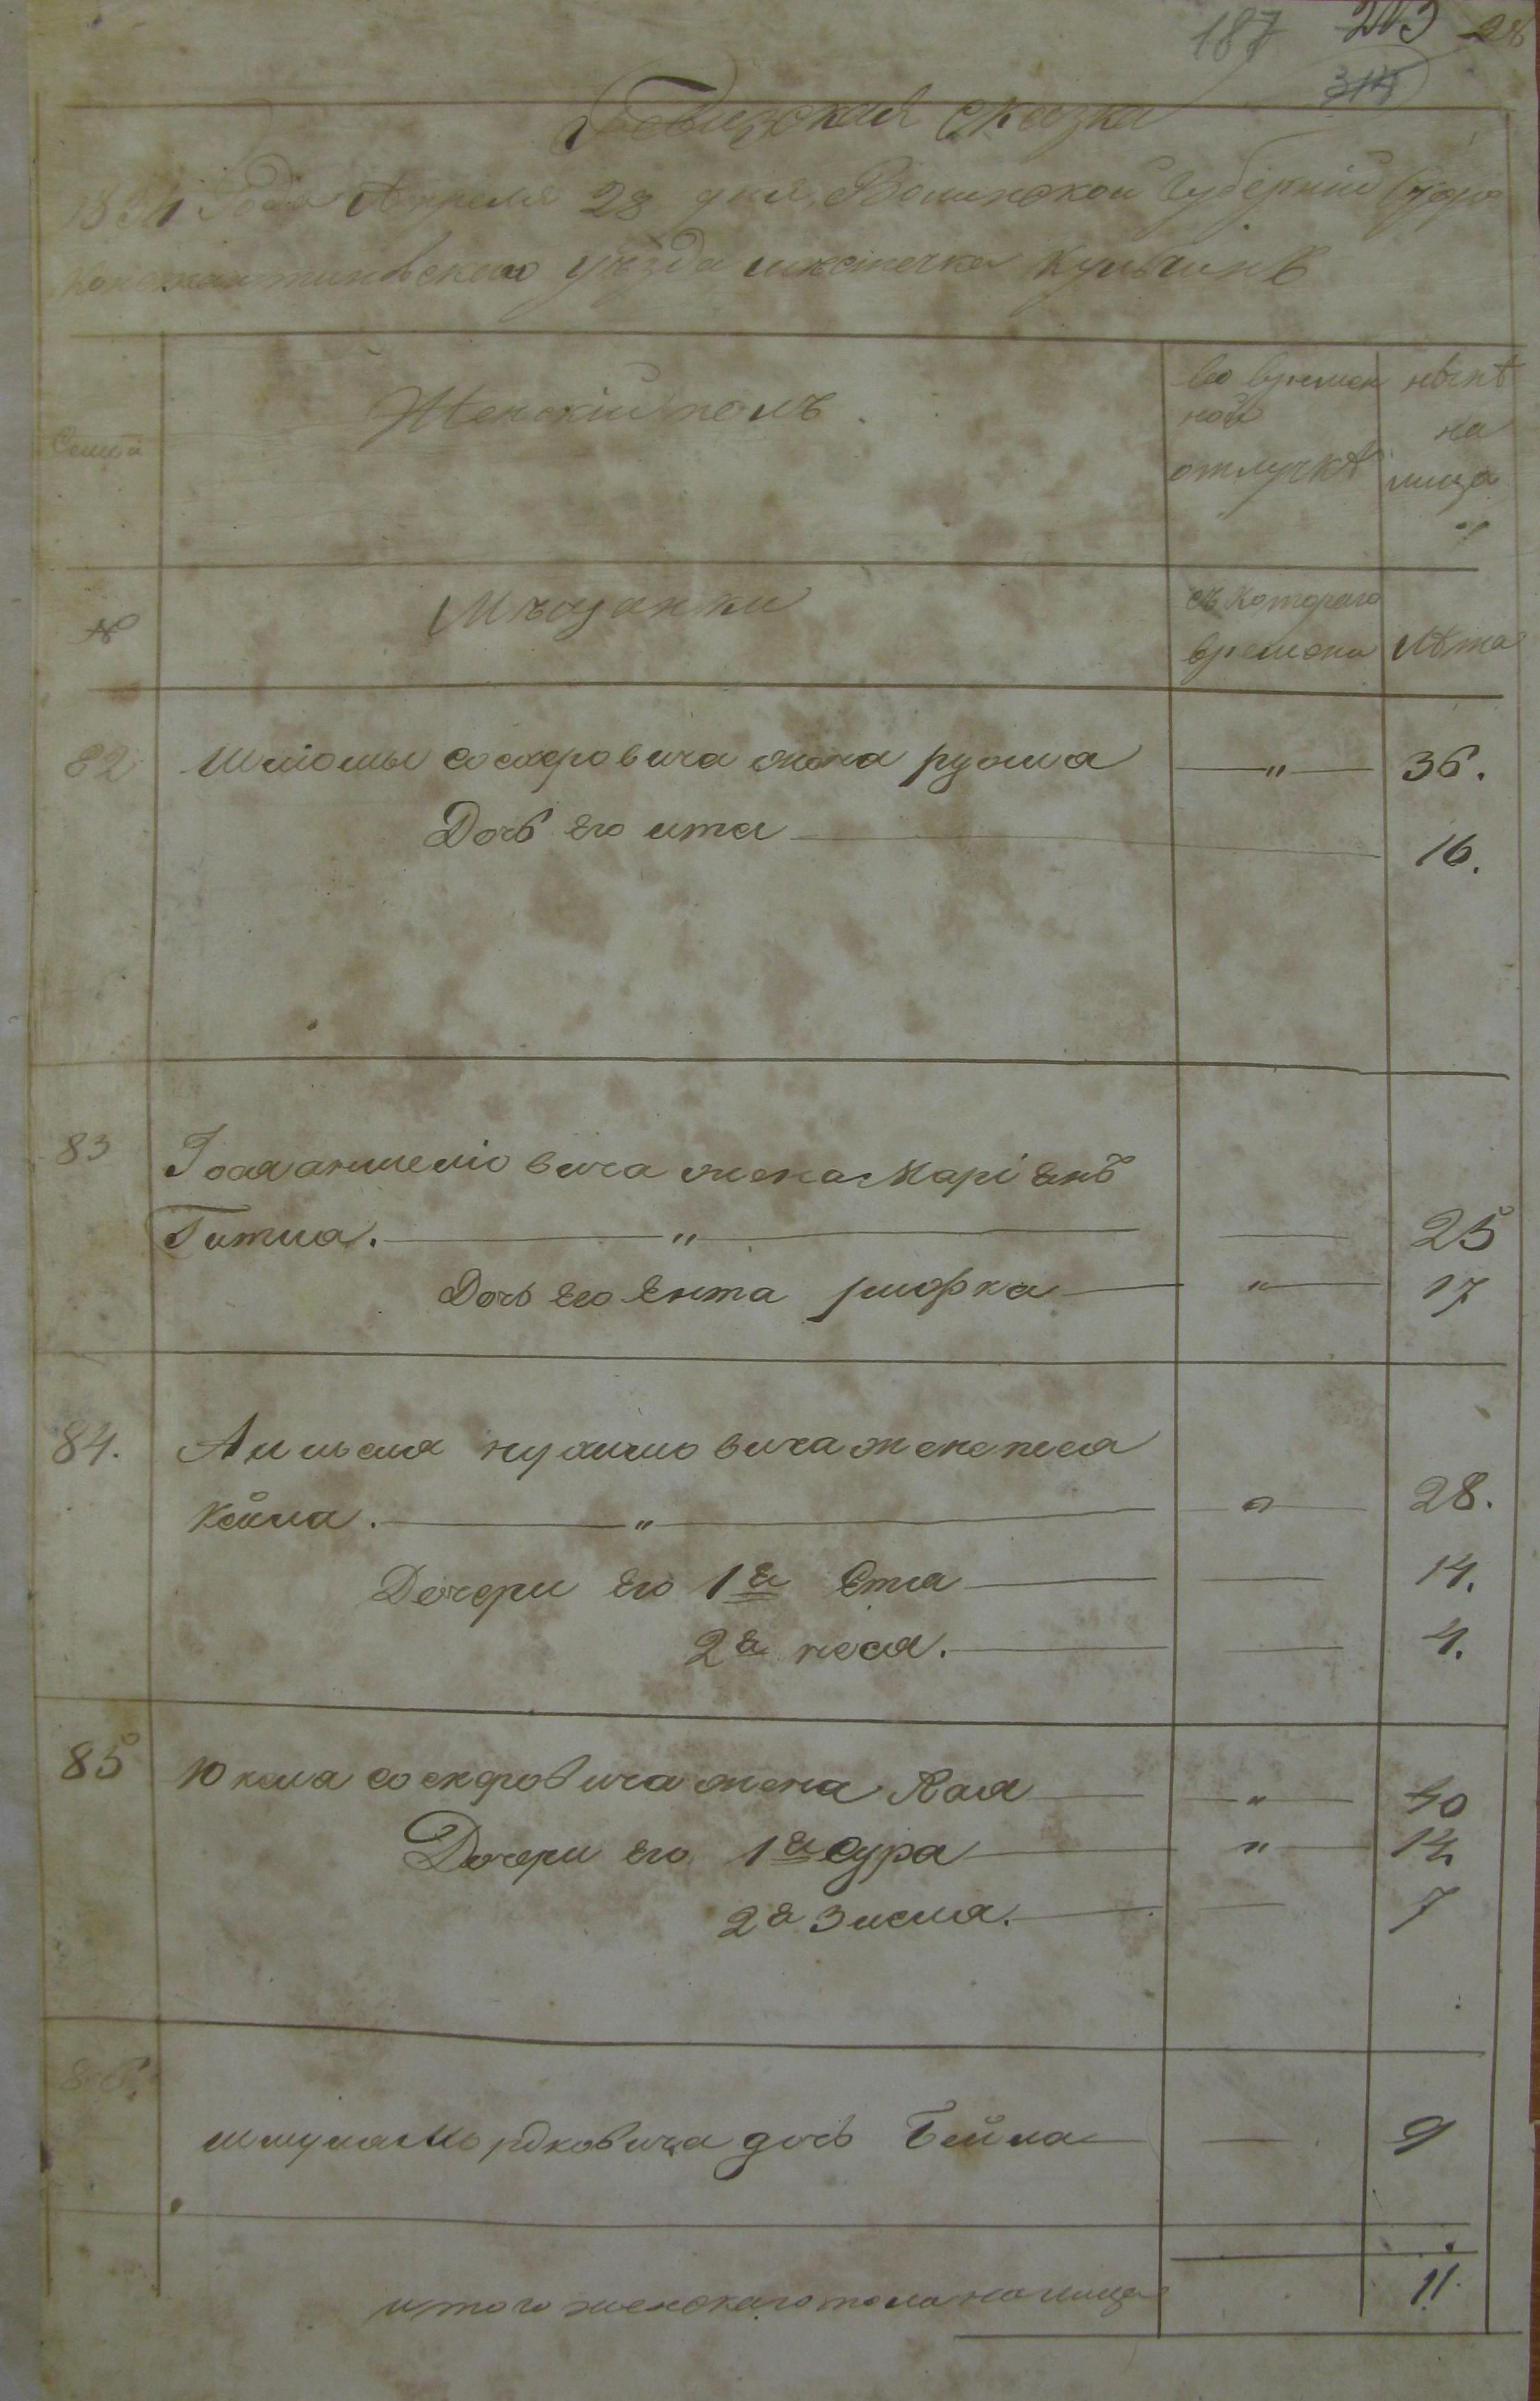 187 203 28
315
Ревизская сказка
1834 Года Апреля 28 дня Волинской Губернии Старо
константиновского уѣзда мѣстечка Кульчинъ
Семьи Женскій полъ. во времен ной отлучкѣ нынѣ на лицо
№ Мѣщанки съ котораго времени Лѣта
82 Шліомы сосеровича жена рухля — " — 36.
Дочь Его ита 16.
83 Іося аншеліовича жена Маріемъ
Гитля. " 25
Дочь Его Ента рифка — " — 17
84. Аншеля нухимовича жена песя
Кейла. " — " — 28.
Дочери Его 1я Етя 14.
2я песя. 4.
85 Юкеля соскровича жена Хая — " — 40
Дочери Его 1я Сура — " — 14
2я Зисля. 7
86. шмуля Мордковича дочь Бейла 9
итого женскаго пола на лицо 11.